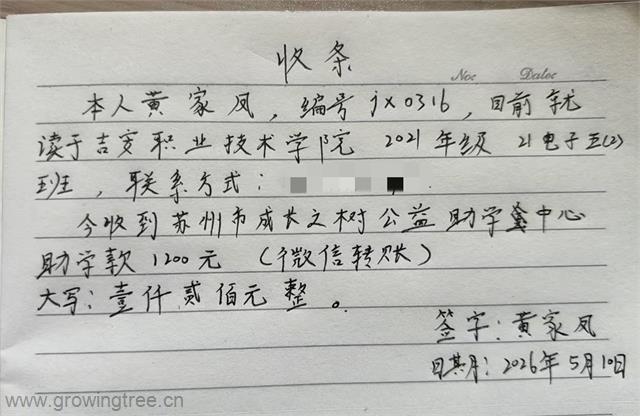 收条
No: Date:
本人黄家凤，编号jx0316，目前就
读于吉安职业技术学院 2021年级 21电子五(2)
班，联系方式：
今收到苏州市成长之树公益助学中心
助学款1200元（微信转账）
大写：壹仟贰佰元整。
签字：黄家凤
日期：2026年5月10日
www.growingtree.cn